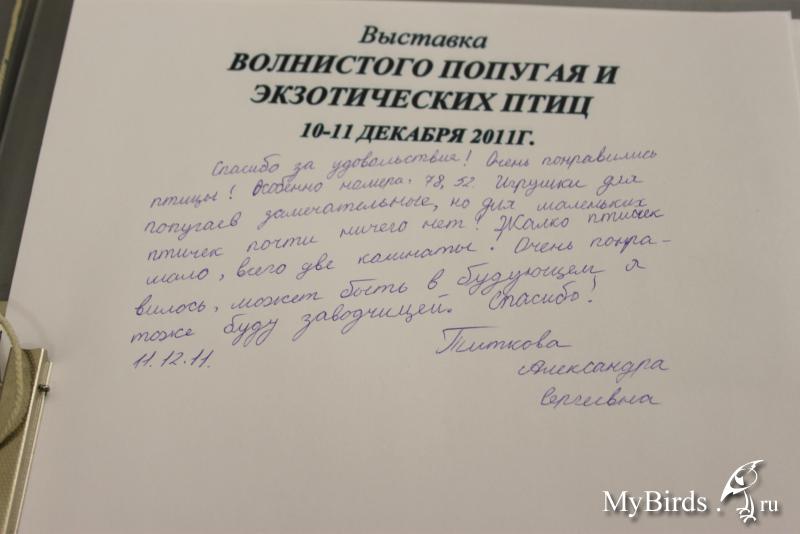 Выставка
ВОЛНИСТОГО ПОПУГАЯ И
ЭКЗОТИЧЕСКИХ ПТИЦ
10-11 ДЕКАБРЯ 2011Г.
Спасибо за удовольствие! Очень понравились
птицы! Особенно номера: 78, 52. Игрушки для
попугаев замечательные, но для маленьких
птичек почти ничего нет! Жалко птичек
мало, всего две комнаты! Очень понра-
вилось, может быть в будующем я
тоже буду заводчицей. Спасибо!
11.12.11.
Титкова
Александра
Сергеевна
MyBirds.ru